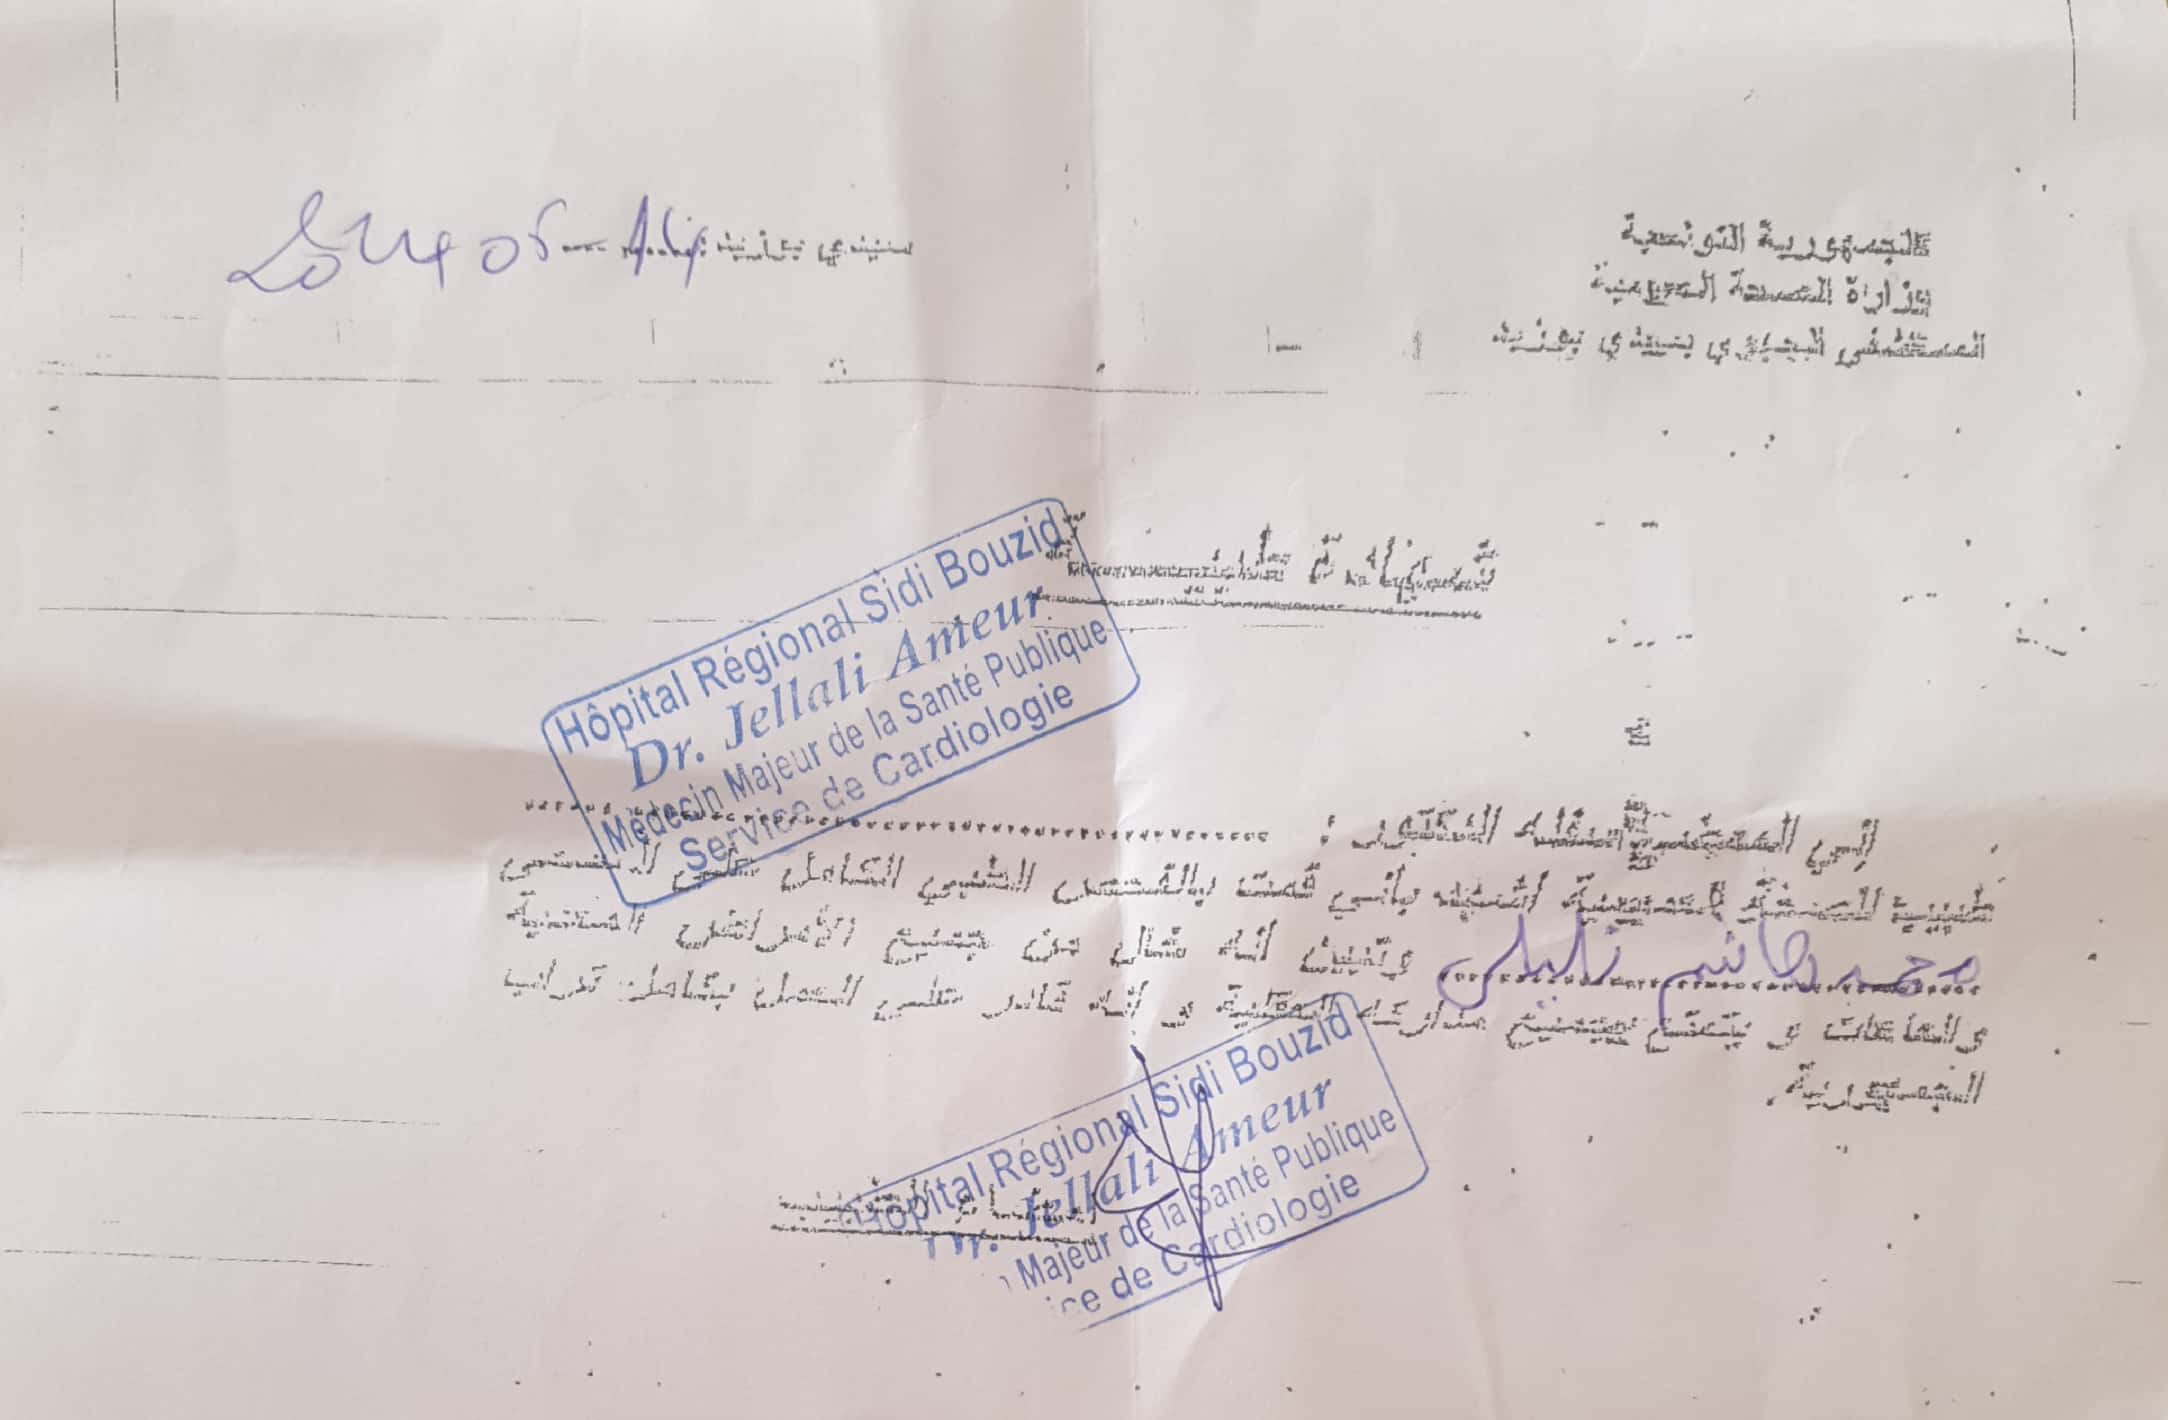 الجمهورية التونسية
وزارة الصحة العمومية
المستشفى الجهوي بسيدي بوزيد
سيدي بوزيد في
شهادة طبية
Hôpital Régional Sidi Bouzid
Dr. Jellali Ameur
Médecin Majeur de la Santé Publique
Service de Cardiologie
إني الممضي أسفله الدكتور :
طبيب الصحة العمومية أشهد بأنني قمت بالفحص الطبي الكامل على
محمد هاشم
وتبين أنه سالم من جميع الأمراض المعدية
والعاهات و يتمتع بجميع مداركه العقلية و أنه قادر على العمل بكامل تراب
الجمهورية.
Hôpital Régional Sidi Bouzid
Dr. Jellali Ameur
Majeur de la Santé Publique
ice de Cardiologie